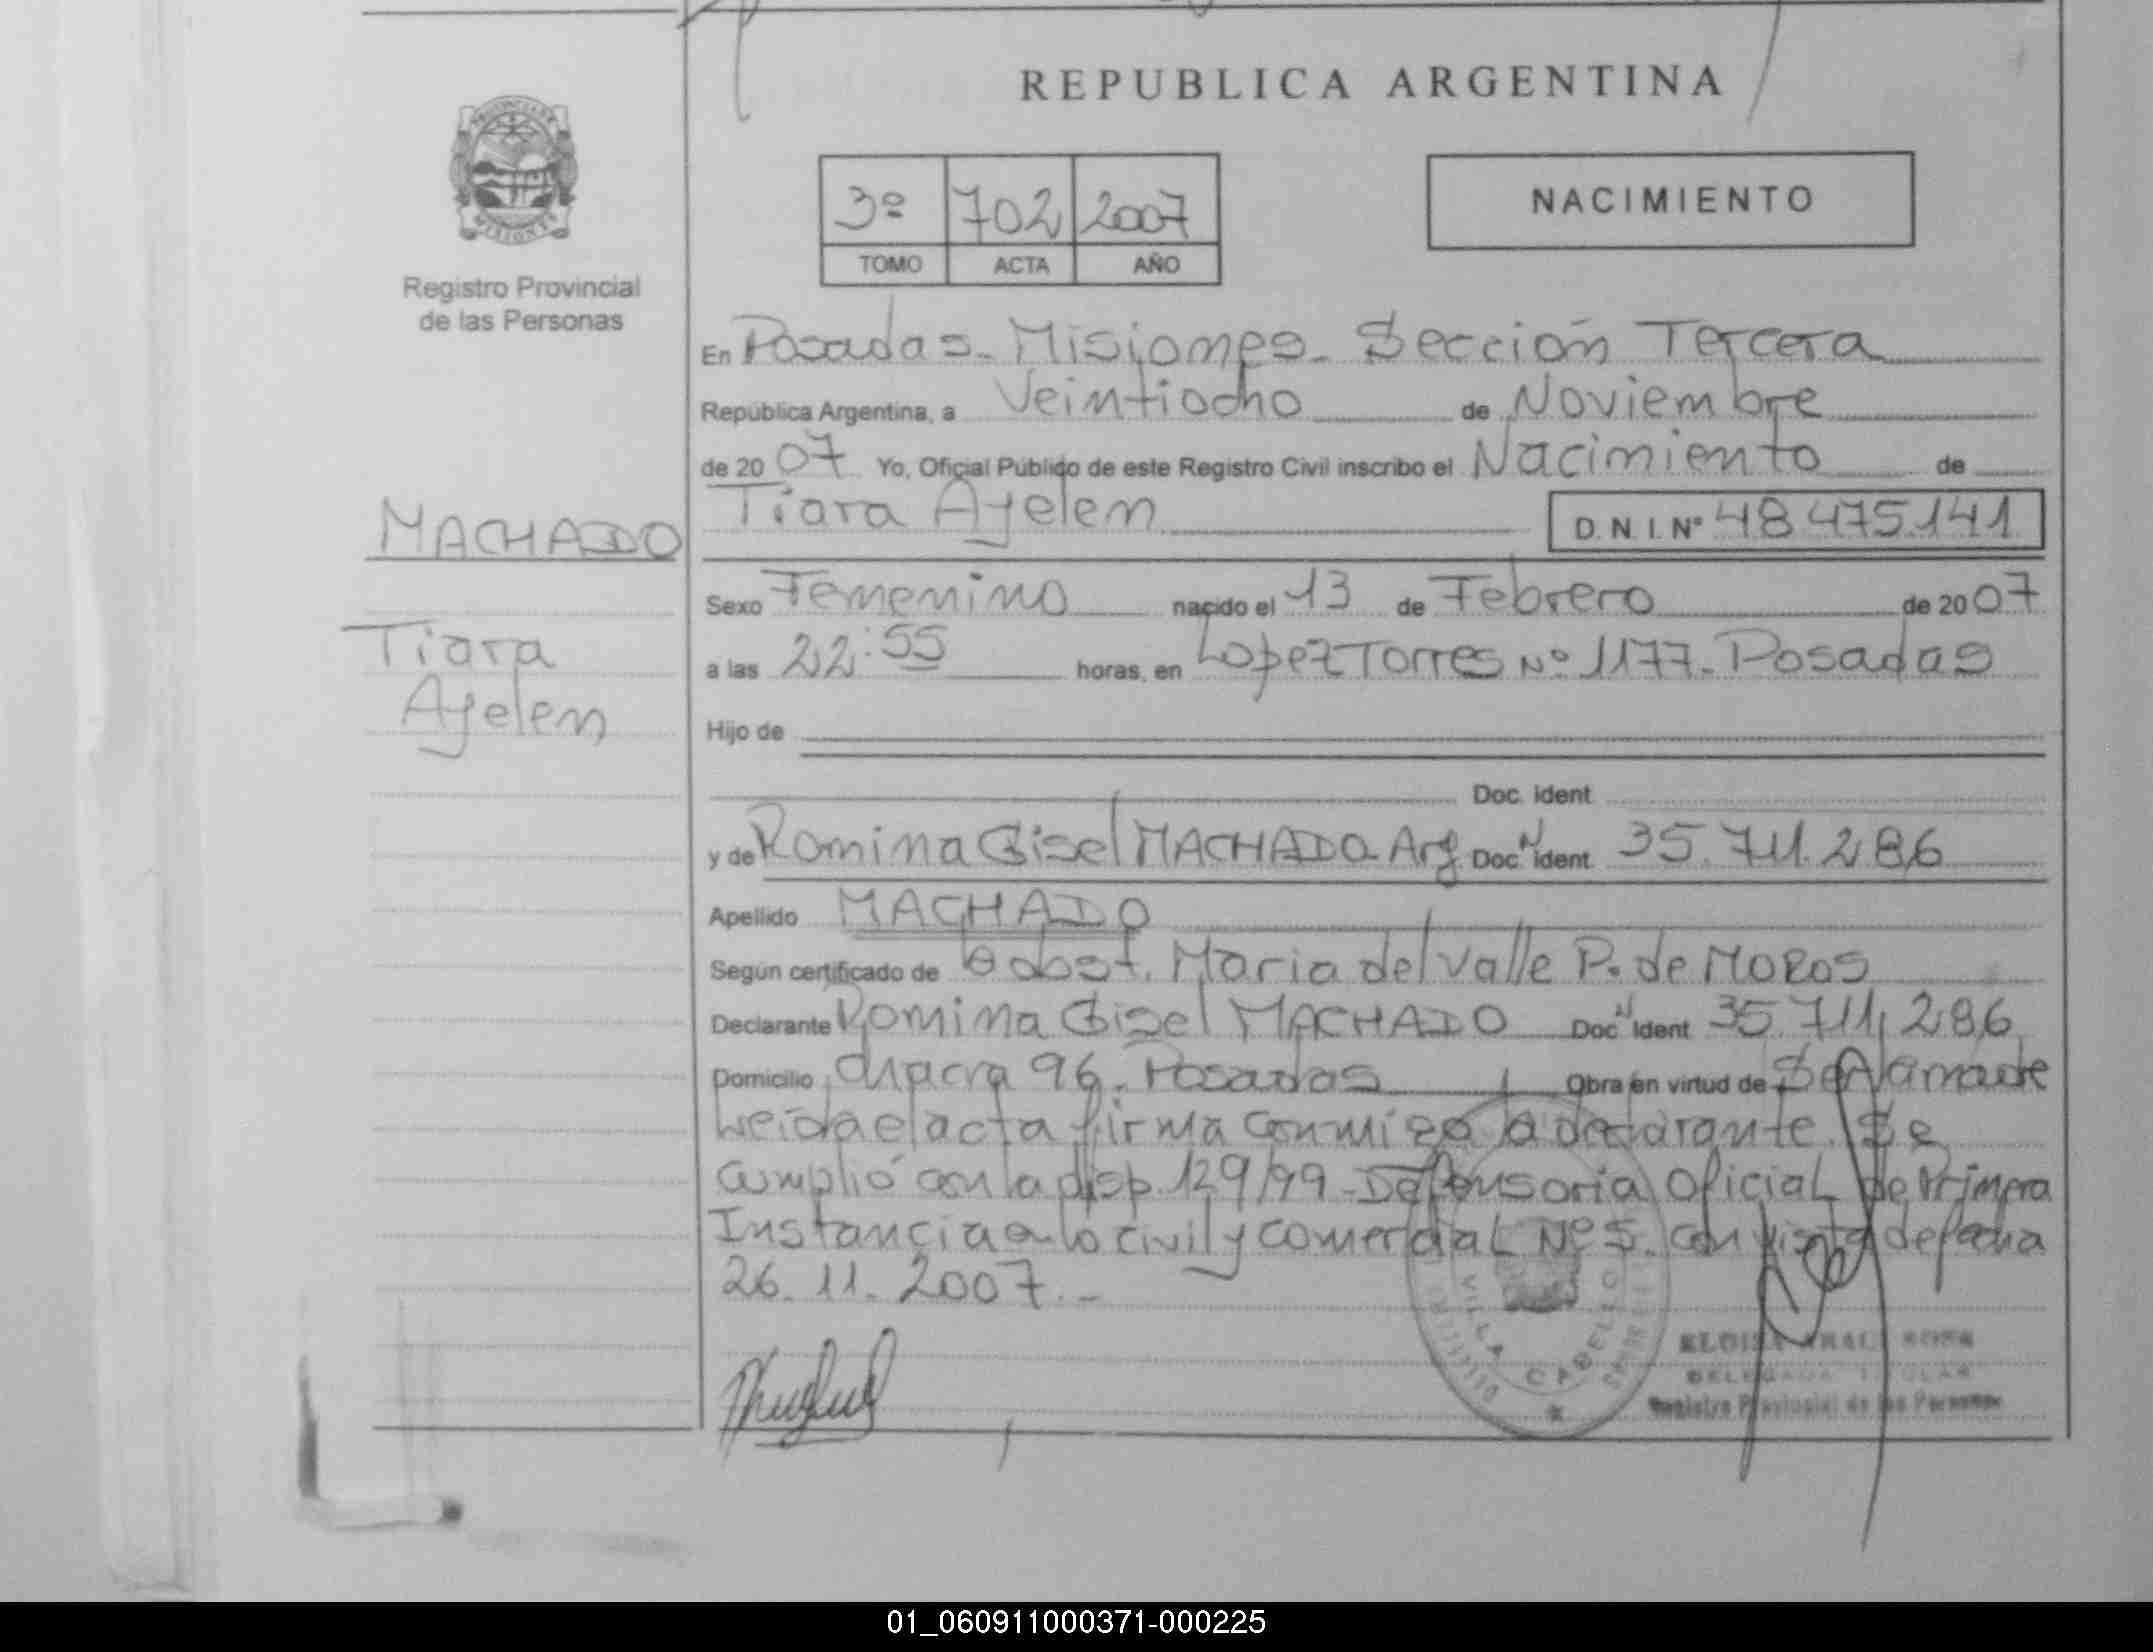 REPUBLICA ARGENTINA
PROVINCIA DE
MISIONES
Registro Provincial
de las Personas
3º 702 2007
TOMO ACTA AÑO
NACIMIENTO
En Posadas - Misiones - Sección Tercera
República Argentina, a Veintiocho de Noviembre
de 2007 Yo, Oficial Público de este Registro Civil inscribo el Nacimiento de
Tiara Ayelen D. N. I. Nº 48 475.141
MACHADO
Tiara
Ayelen
Sexo Femenino nacido el 13 de Febrero de 2007
a las 22:55 horas, en Lopez Torres Nº 1177 - Posadas
Hijo de
Doc. Ident
y de Romina Gisel MACHADO Arg Doc N Ident 35.711.286
Apellido MACHADO
Según certificado de Obst. Maria del Valle P. de MOROS
Declarante Romina Gisel MACHADO Doc N Ident 35.711.286
Domicilio Chacra 96. Posadas Obra en virtud de
Leida el acta firma conmigo la declarante. Se
cumplió con la disp. 129/99 - Defensoria Oficial de Primera
Instancia a lo civil y comercial Nº 5. con vista de fecha
26. 11. 2007. -
VILLA CABELLO
DELEGADA TITULAR
Registro Provincial de las Personas
01_060911000371-000225